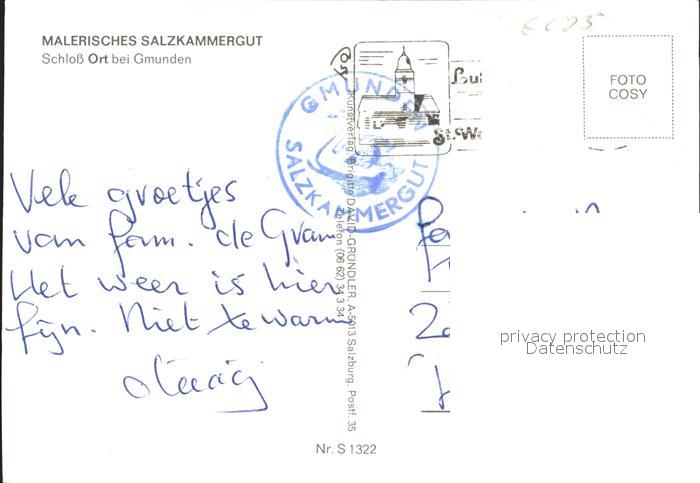 MALERISCHES SALZKAMMERGUT
Schloß Ort bei Gmunden
FOTO
COSY
GMUNDEN
SALZKAMMERGUT
St.Wo
Kunstverlag Brigitte DAVID-GRÜNDLER, A-5013 Salzburg, Postf. 35
Telefon (06 62) 34 3 34
Vele groetjes
van fam. de Gram
Het weer is hier
fijn. Niet te warm
privacy protection
Datenschutz
Nr. S 1322